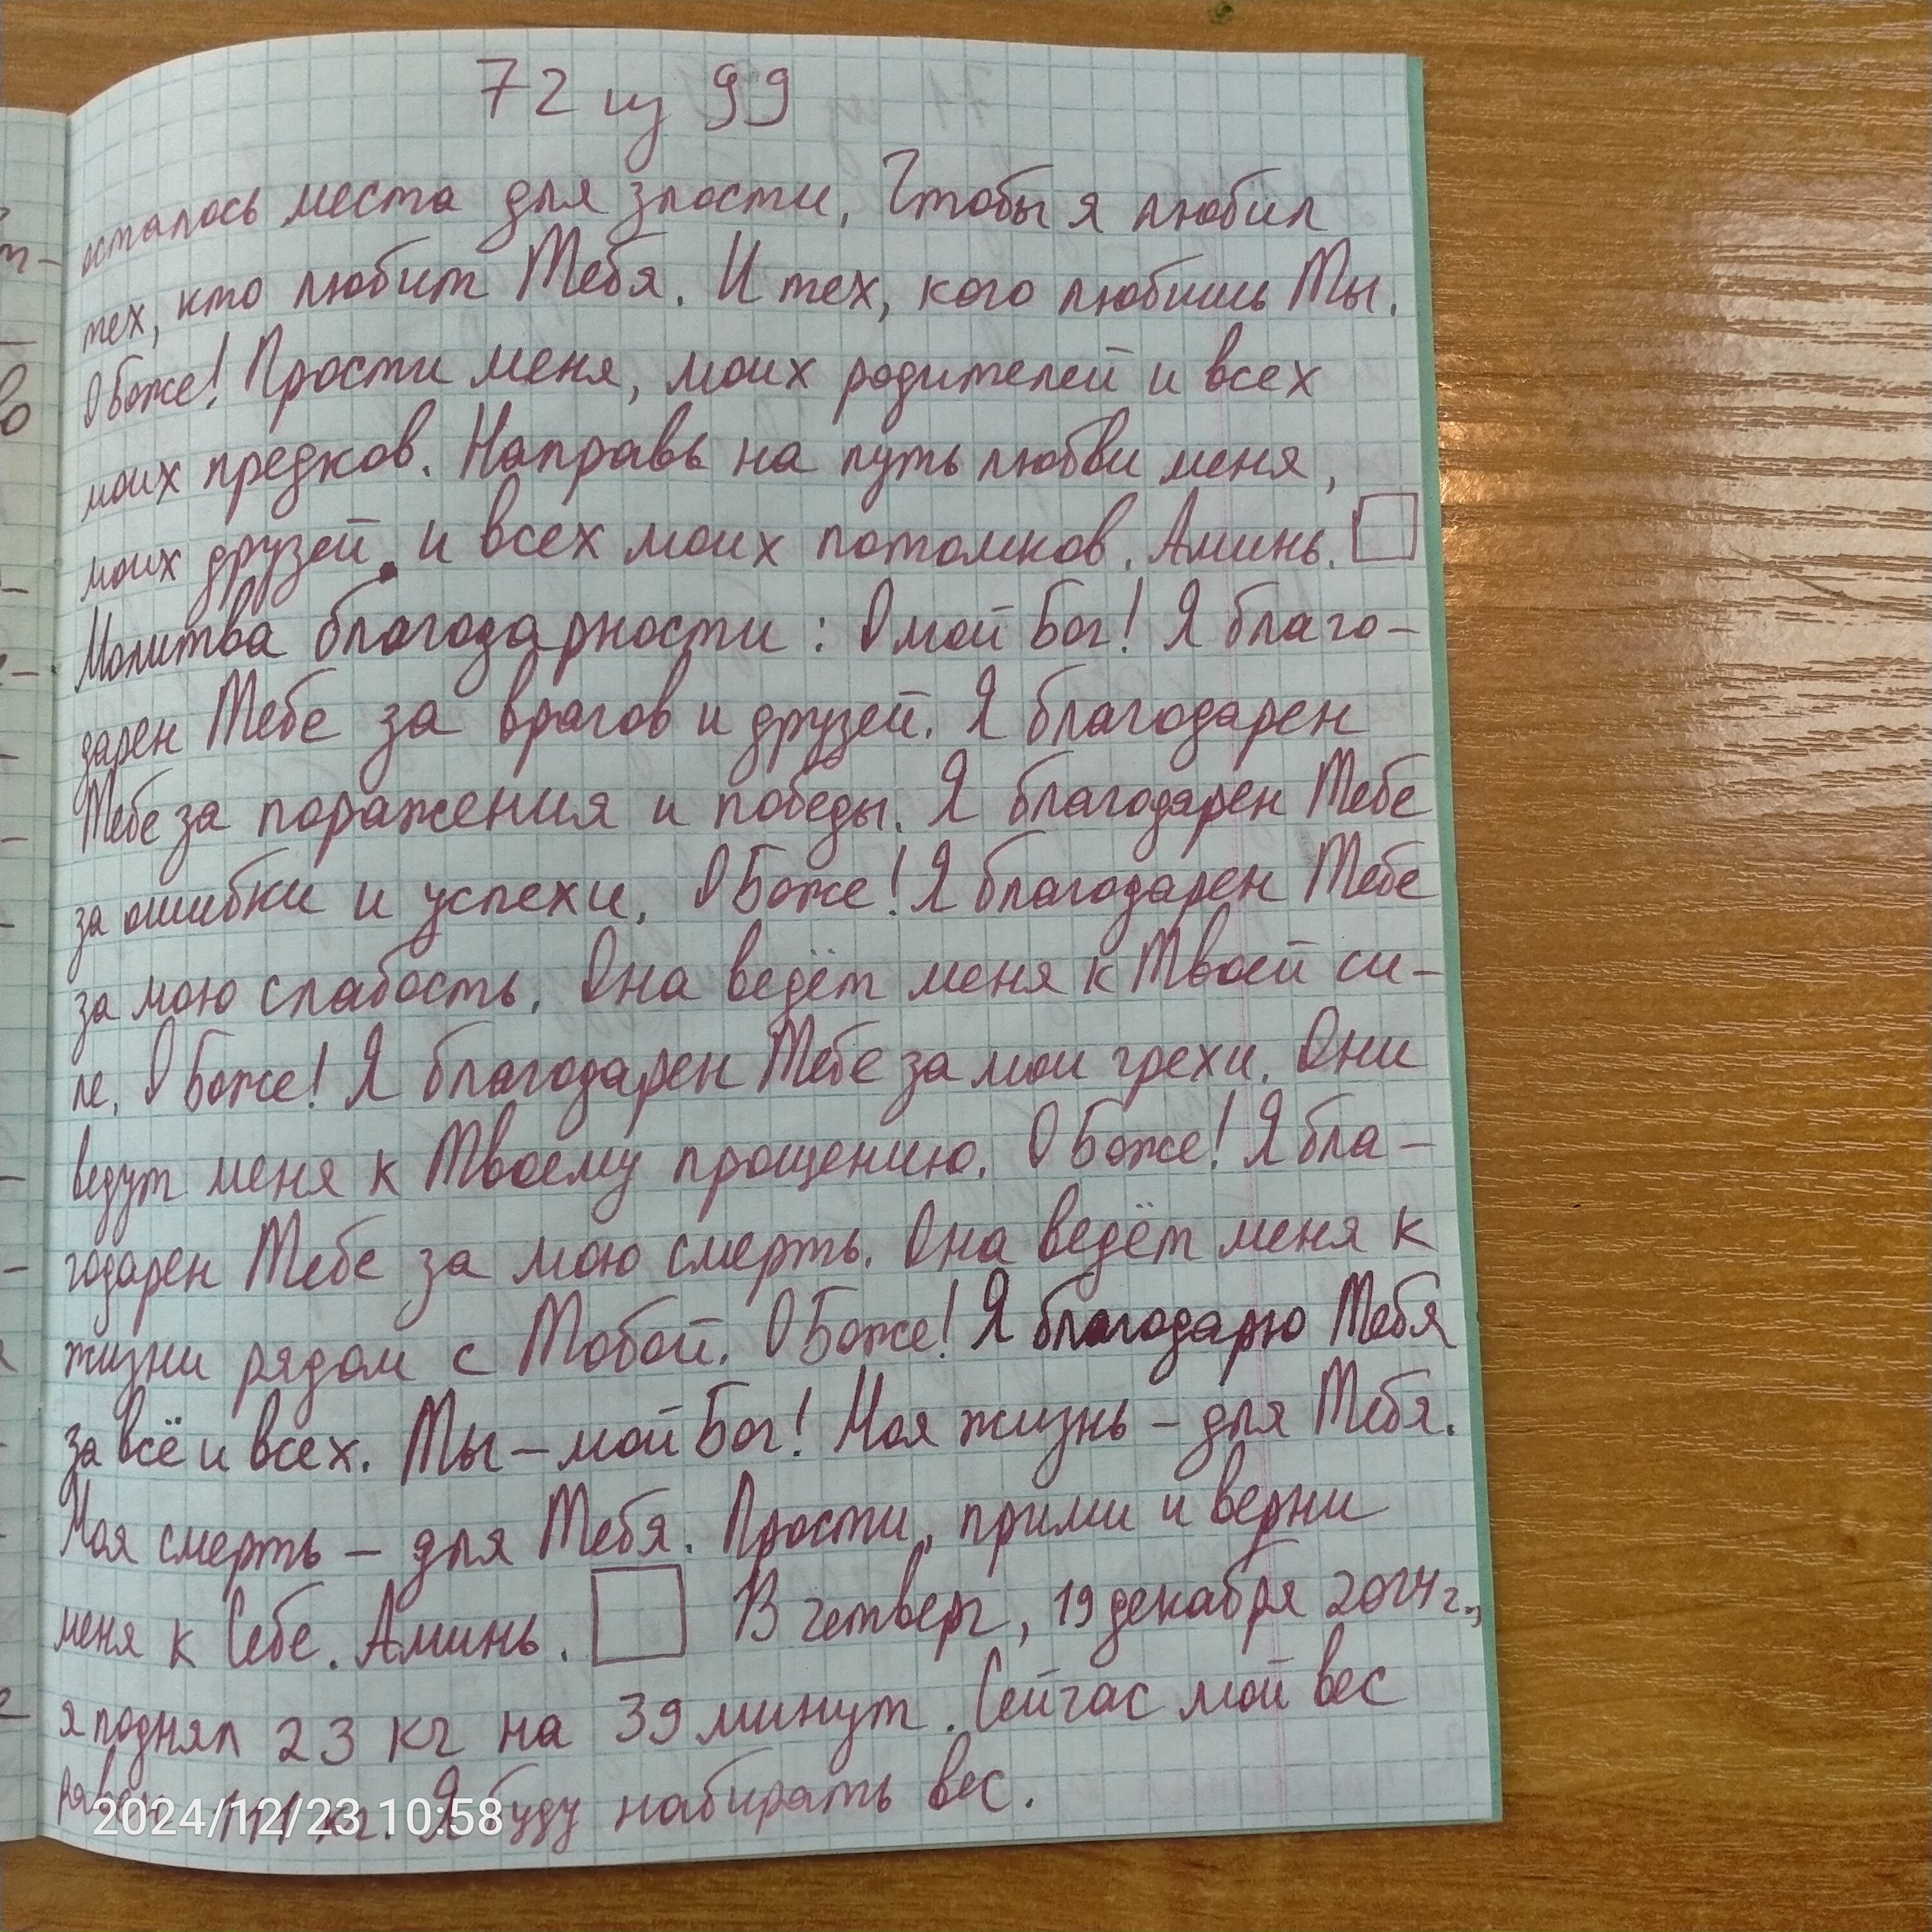 72 из 99
осталось места для злости. Чтобы я любил
тех, кто любит Тебя. И тех, кого любишь Ты.
О Боже! Прости меня, моих родителей и всех
моих предков. Направь на путь любви меня,
моих друзей и всех моих потомков. Аминь.
Молитва благодарности: О мой Бог! Я благо-
дарен Тебе за врагов и друзей. Я благодарен
Тебе за поражения и победы. Я благодарен Тебе
за ошибки и успехи. О Боже! Я благодарен Тебе
за мою слабость. Она ведёт меня к Твоей си-
ле. О Боже! Я благодарен Тебе за мои грехи. Они
ведут меня к Твоему прощению. О Боже! Я бла-
годарен Тебе за мою смерть. Она ведёт меня к
жизни рядом с Тобой. О Боже! Я благодарю Тебя
за всё и всех. Ты – мой Бог! Моя жизнь – для Тебя.
Моя смерть – для Тебя. Прости, прими и верни
меня к Себе. Аминь. В четверг, 19 декабря 2024 г.,
я поднял 23 кг на 39 минут. Сейчас мой вес
равен 111 кг. Я буду набирать вес.
2024/12/23 10:58